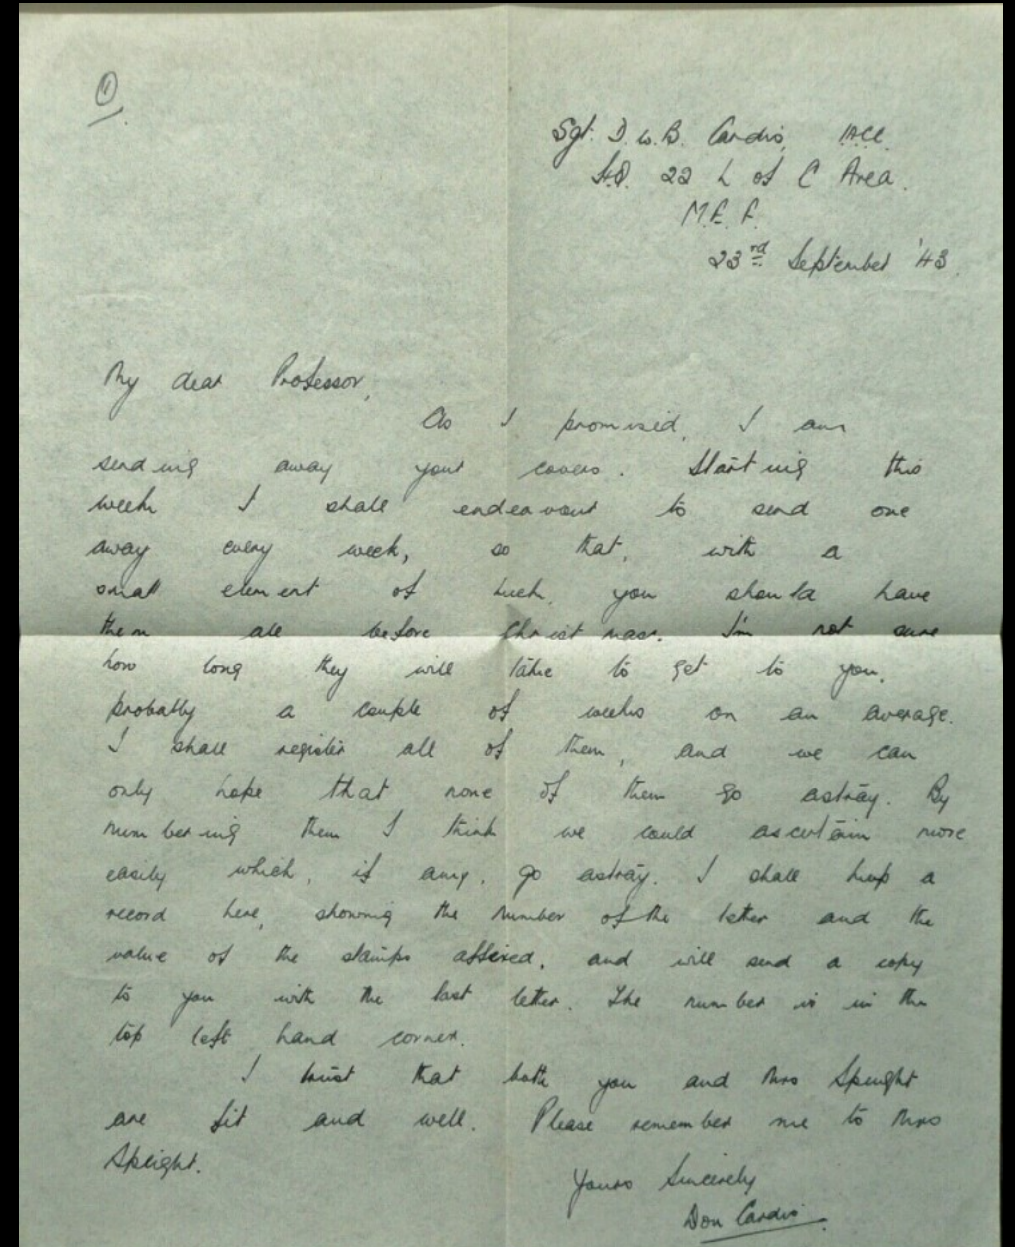 ①
Sgt. D. W. B. Cardis, IACC.
H.Q. 22 L of C Area.
M.E.F.
23rd September '43.
My dear Professor,
As I promised, I am
sending away your covers. Starting this
week I shall endeavour to send one
away every week, so that, with a
small element of luck, you should have
them all before Christmas. I'm not sure
how long they will take to get to you,
probably a couple of weeks on an average.
I shall register all of them, and we can
only hope that none of them go astray. By
numbering them I think we could ascertain more
easily which, if any, go astray. I shall keep a
record here, showing the number of the letter and the
value of the stamps affixed, and will send a copy
to you with the last letter. The number is in the
top left hand corner.
I trust that both you and Mrs Speight
are fit and well. Please remember me to Mrs
Speight.
Yours Sincerely
Don Cardis.